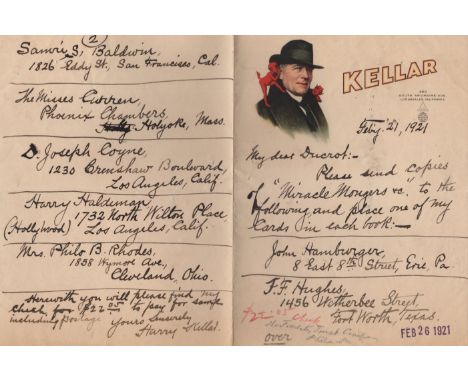 (2)
Samri S. Baldwin,
1826 Eddy St., San Francisco, Cal.
The Misses Curren,
Phoenix Chambers,
Holyoke, Mass.
D. Joseph Coyne,
1230 Crenshaw Boulevard,
Los Angeles, Calif.
Harry Haldeman
1732 North Wilton Place,
(Hollywood) Los Angeles, Calif.
Mrs. Philo B. Rhodes,
1838 Wymore Ave.,
Cleveland, Ohio.
Herewith you will please find my
check for $22.05 to pay for same
including postage
Yours Sincerely
Harry Kellar.
KELLAR
LOS ANGELES, CALIFORNIA
Feby 21, 1921
My dear Ducrot:-
Please send copies
of "Miracle Mongers &c." to the
following and place one of my
Cards in each book:-
John Hamburger,
8 East 8th Street, Erie, Pa.
F.F. Hughes,
1456 Wetherbee Street,
Fort Worth, Texas.
$22.05 Check
over
FEB 26 1921